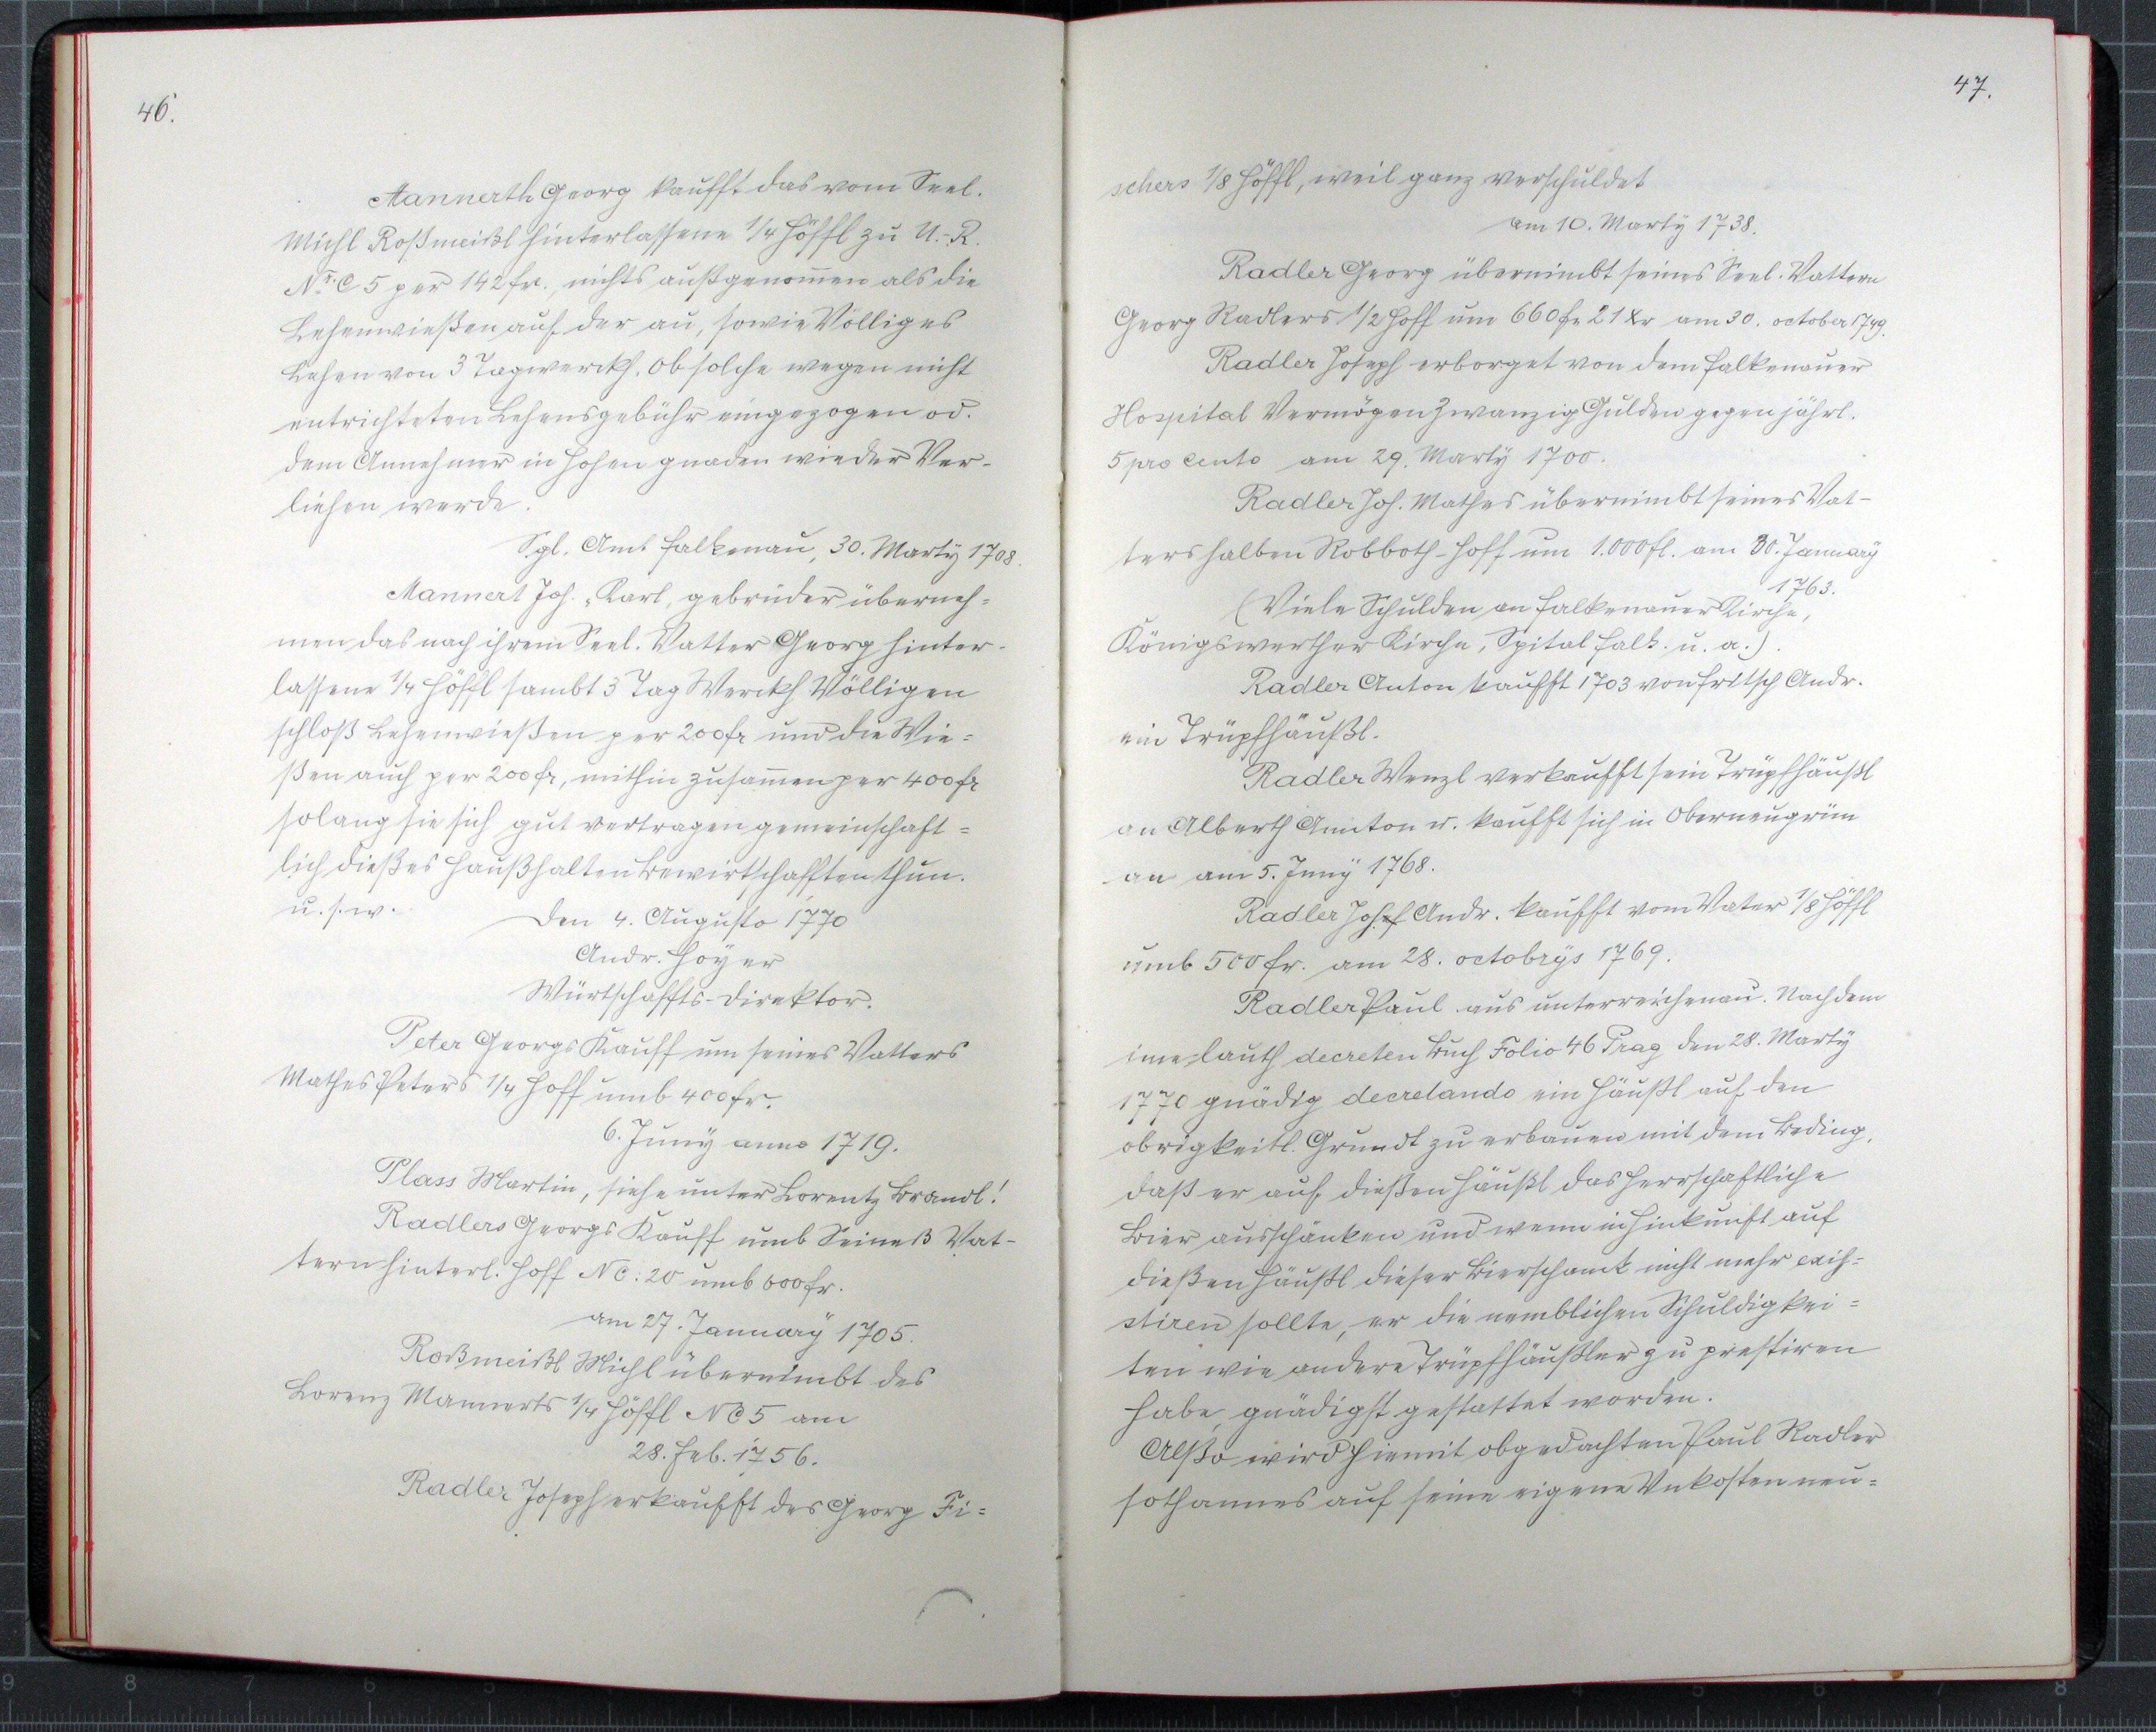 46.
Mannerth Georg kaufft das vom Seel.
Michl Roßmeißl hinterlassene 1/4 Höffl zu U.-R.
Nr. C 5 per 142 fr., nichts außgenom̄en als die
Lehenwießen auf der au, sowie Völliges
Lehen von 3 Tagwerckh, ob solche wegen nicht
entrichteten Lehensgebühr eingezogen od.
dem Annehmer in hohen gnaden wieder Ver-
liehen werde.
Sgl. Amt Falkenau, 30. Marty 1708.
Mannert Joh., Karl, gebrüder überneh=
men das nach ihrem Seel. Vatter Georg hinter-
lassene 1/4 Höffl sambt 3 Tag Werckh Völligen
schloß Lehenwießen per 200 fr und die Wie=
ßen auch per 200 fr, mithin zusam̄en per 400 fr
solang sie sich gut vertragen gemeinschaft=
lich dießes Haußhalten bewirtschafften thun.
u. s. w.
Den 4. Augusto 1770
Andr. Hoyer
Würtschaffts-Direktor.
Peter Georgs Kauff um seines Vatters
Mathes Peters 1/4 Hoff umb 400 fr.
6. Juny anno 1719.
Plass Martin, siehe unter Lorentz Brandl!
Radlers Georgs Kauff umb Seines Vat-
tern hinterl. Hoff NC: 20 umb 600 fr.
am 27. January 1705.
Roßmeißl Michl übernimbt des
Lorenz Mannerts 1/4 Höffl NC 5 am
28. Feb. 1756.
Radler Joseph erkaufft des Georg Fi=
47.
schers 1/8 Höffl, weil ganz verschuldet
am 10. Marty 1738.
Radler Georg übernimbt seines Seel. Vattern
Georg Radlers 1/2 Hoff um 660 fr 21 Xr am 30. october 1749.
Radler Joseph erborget von dem Falkenauer
Hospital Vermögen Zwanzig Gulden gegen jährl.
5 pro cento am 29. Marty 1700.
Radler Joh. Mathes übernimbt seines Vat-
ters halben Robboth-Hoff um 1.000 fl. am 30. January
1763.
(Viele Schulden an Falkenauer Kirche,
Königswerther Kirche, Spital Falk. u. a.).
Radler Anton kaufft 1703 von Fritsch Andr.
ein Trüpfhäußl.
Radler Wenzl verkaufft sein Trüpfhäußl
an Alberth Annton u. kaufft sich in Oberneugrün
an am 5. Juny 1768.
Radler Joh. Andr. kaufft vom Vater 1/8 Höffl
umb 500 fr. am 28. octobrys 1769.
Radler Paul aus unterreichenau. Nachdem
ime lauth decreten Buch Folio 46 Prag den 28. Marty
1770 gnädig decretando ein Häußl auf den
obrigkeitl. Grundt zu erbauen mit dem Beding,
daß er auf dießen Häußl das Herrschaftliche
Bier ausschänken und wenn in Hinkunft auf
dießen Häußl dieser Bierschank nicht mehr exis=
stiren sollte, er die nemblichen Schuldigkei=
ten wie andere Trüpfhäußler zu prestiren
habe, gnädigst gestattet worden.
Alßo wird hiemit obgedachten Paul Radler
sothannes auf seine eigene Unkosten neu=